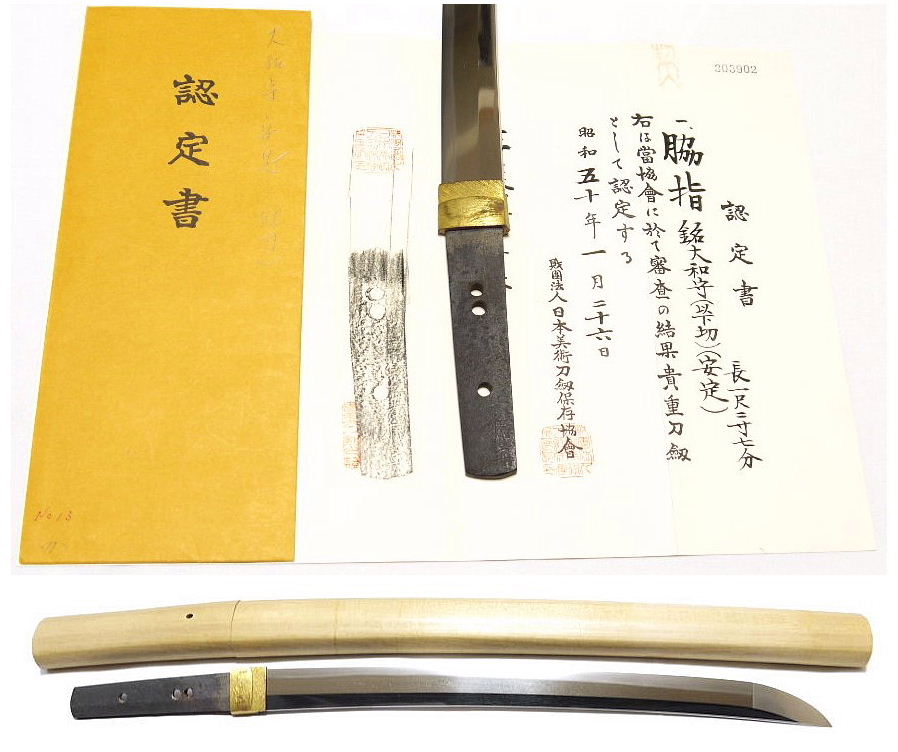 認定書
No 13
303902
認定書
一、脇指 銘 大和守(以下切)(安定) 長一尺二寸七分
右は當協會に於て審査の結果貴重刀劔
として認定する
昭和五十年一月二十六日
財團法人日本美術刀劔保存協會